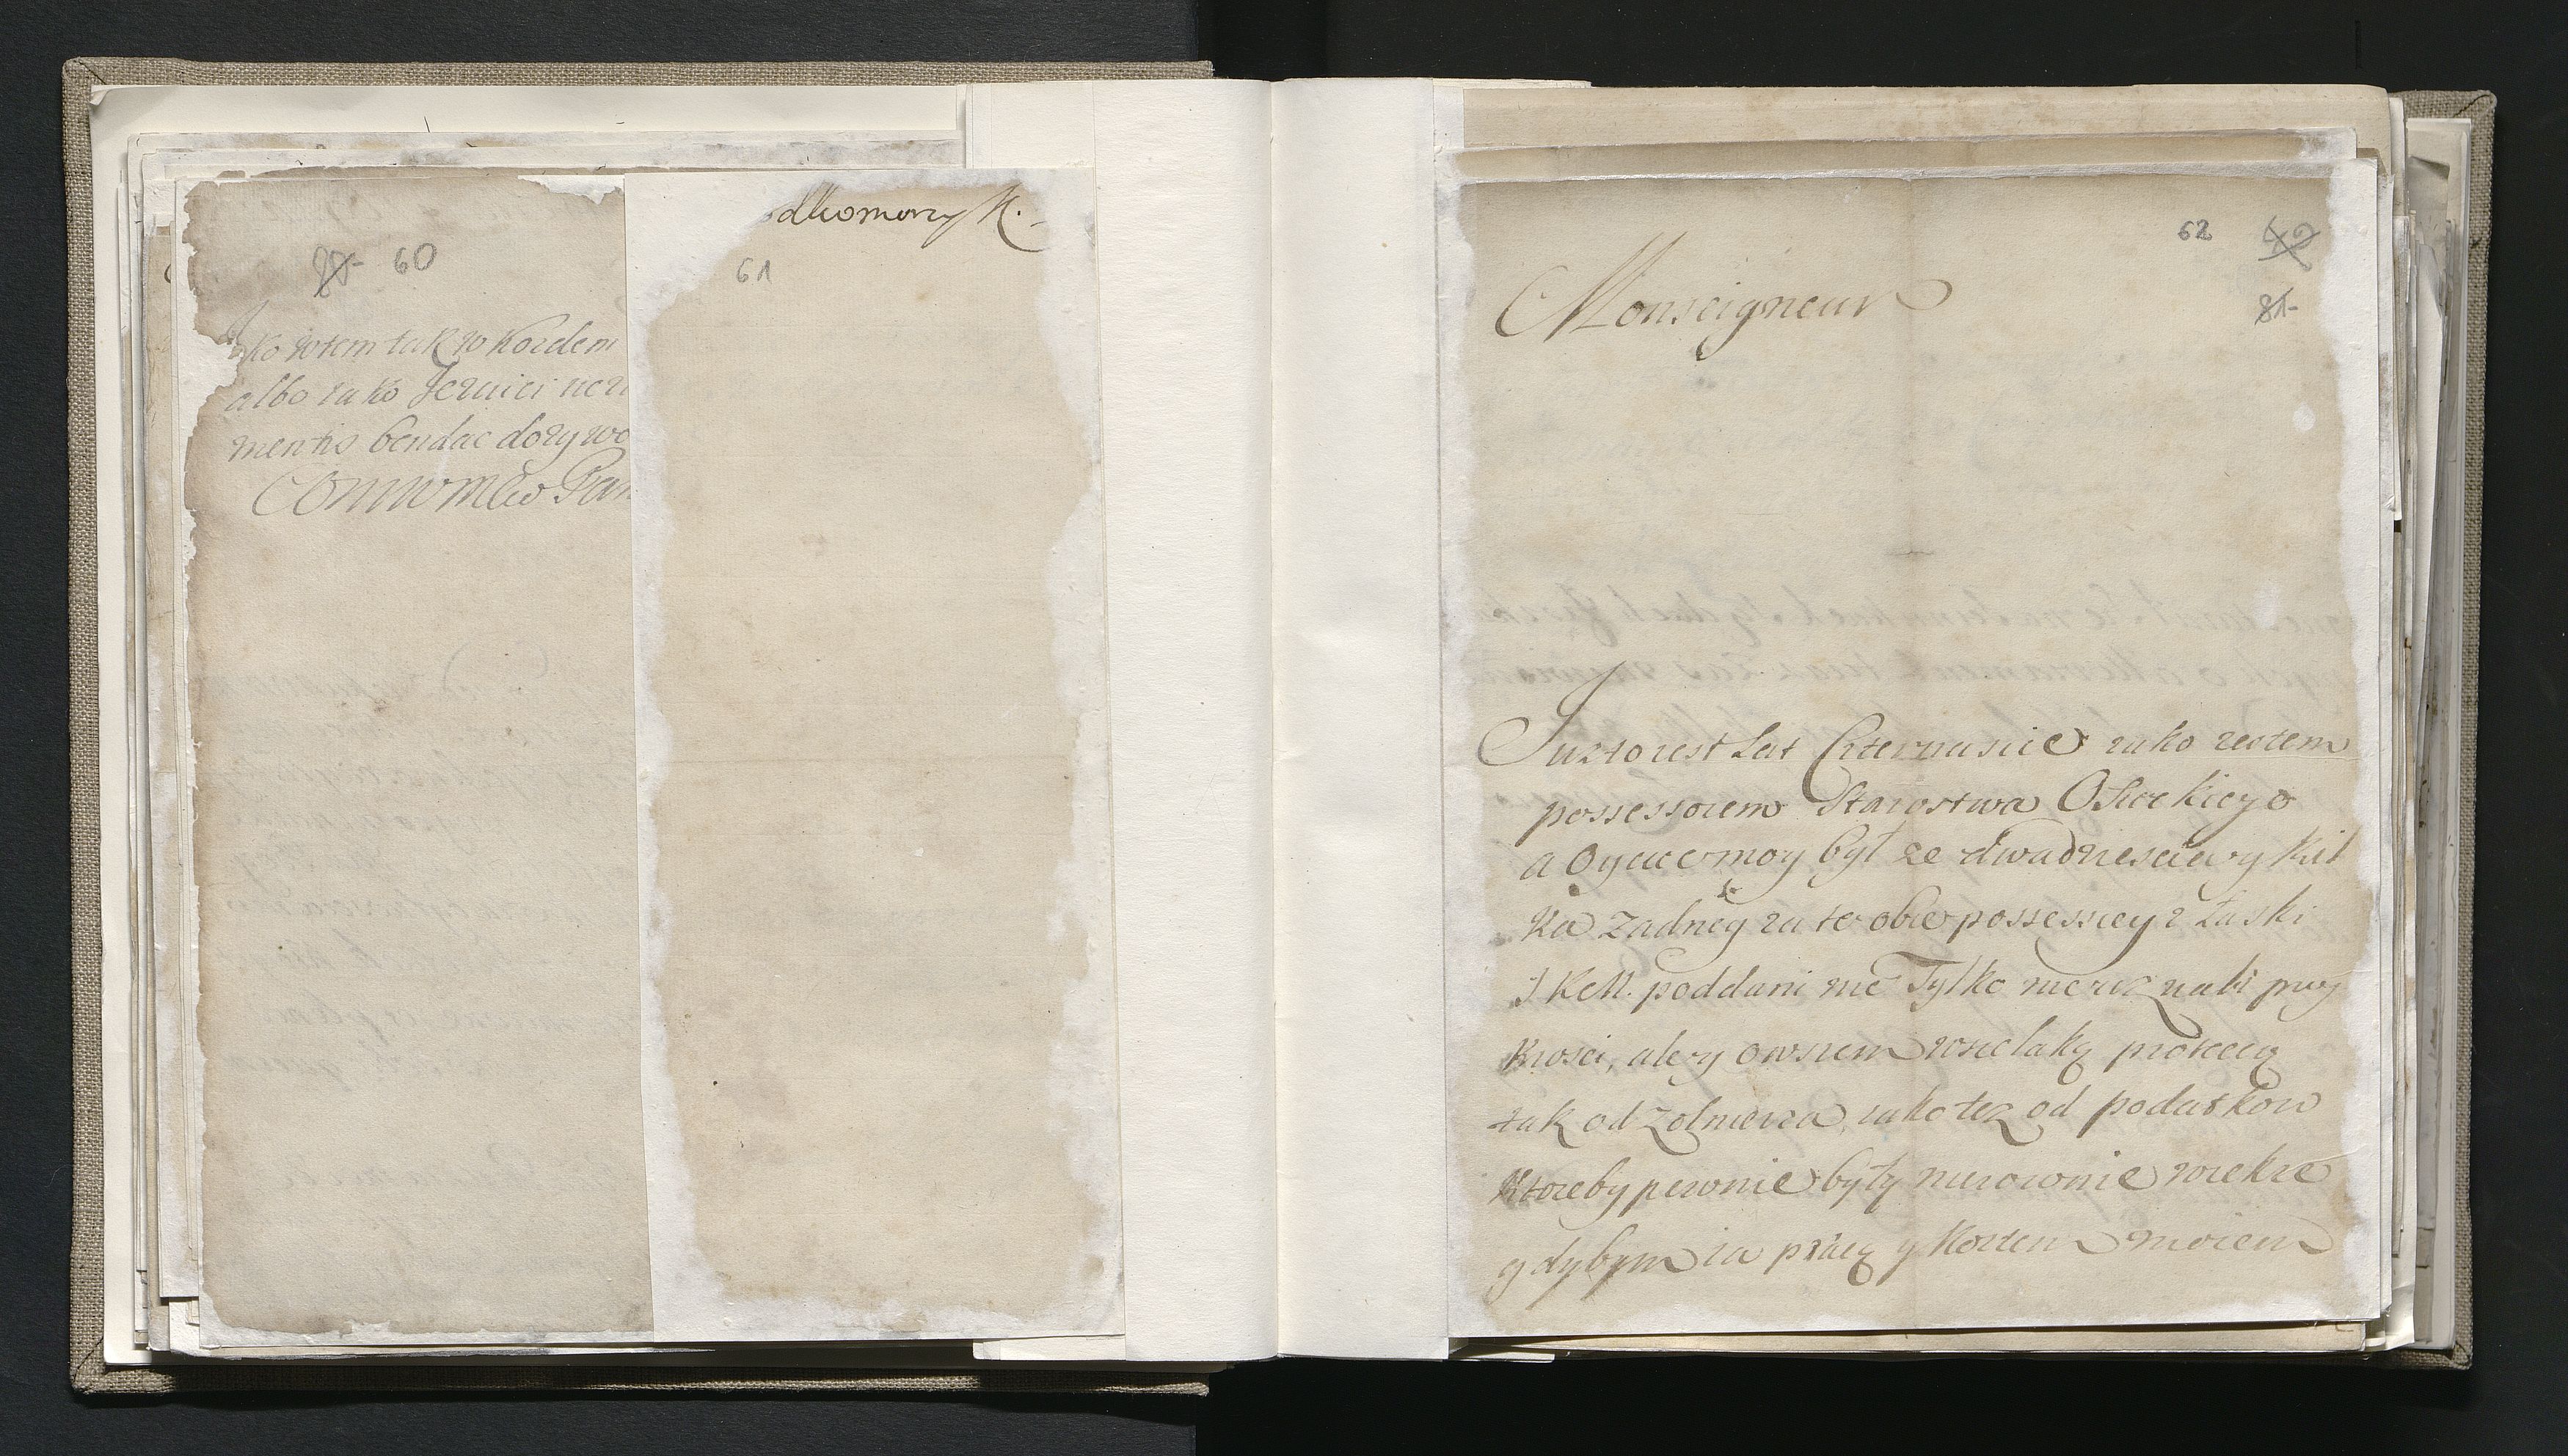 80 60
ko wtem tak w Kozdem
albo iako Jezuici
mentis bendac dozywo
61
62 42
81
Monseigneur
Juz to iest Lat Czternascie iako iestem
possessorem Starostwa Osieckiego
a Oyciec moy był ze dwadziescia y kil
ka zadney za te obie possessiey z Łaski
J K M. poddani nie Tylko nie uznali przy
krosci, ale y owszem wszelaką protecią
tak od zolnierza, iako tez od podatkow
Ktoreby pewnie były nierownie wiekze
gdybym ia pracą y Kosztem moiem